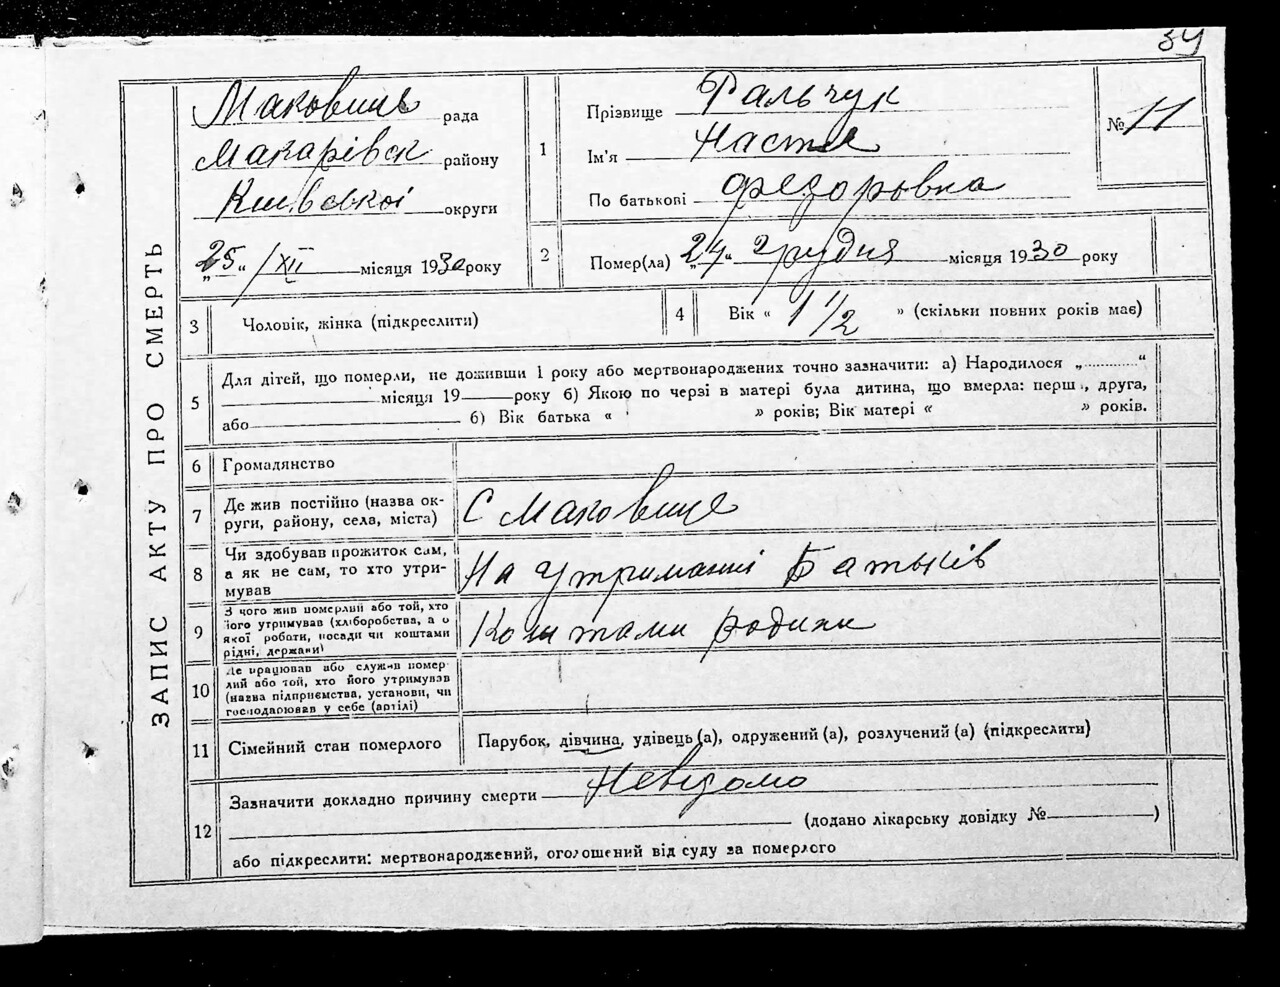 34
ЗАПИС АКТУ ПРО СМЕРТЬ
Маковищ рада
Макарівск району
Київської округи
„25“ /XII місяця 1930 року
1
Прізвище Фальчук
Ім'я Настя
По батькові Федоровна
№ 11
2
Помер(ла) „24“ грудня місяця 1930 року
3
Чоловік, жінка (підкреслити)
4
Вік « 1 1/2 » (скільки повних років має)
5
Для дітей, що померли, не доживши 1 року або мертвонароджених точно зазначити: а) Народилося „ “
місяця 19 року б) Якою по черзі в матері була дитина, що вмерла: перш , друга,
або б) Вік батька « » років; Вік матері « » років.
6
Громадянство
7
Де жив постійно (назва ок-
руги, району, села, міста)
С Маковище
8
Чи здобував прожиток сам,
а як не сам, то хто утри-
мував
На утриманні Батьків
9
З чого жив померлий або той, хто
його утримував (хліборобства, а о
якої роботи, посади чи коштами
рідні, держави)
Коштами родини
10
Де працював або служив помер
лий або той, хто його утримував
(назва підприємства, установи, чи
господарював у себе (артілі)
11
Сімейний стан померлого
Парубок, дівчина, удівець (а), одружений (а), розлучений (а) (підкреслити)
12
Зазначити докладно причину смерти Невідомо
(додано лікарську довідку № )
або підкреслити: мертвонароджений, оголошений від суду за померлого